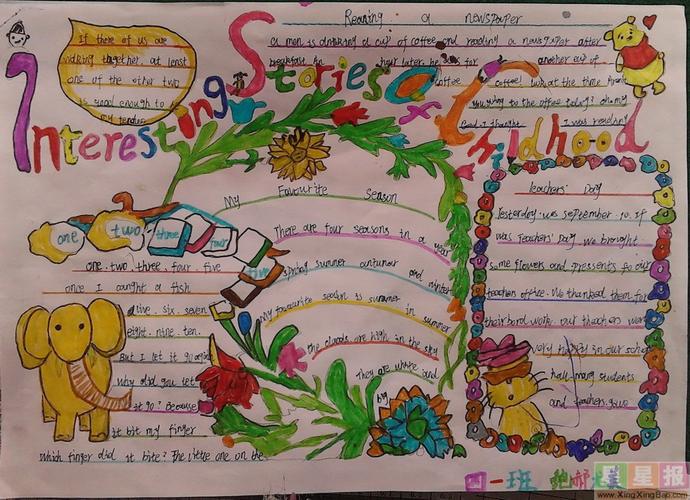 Reading a newspaper
If there of us are
walking together, at least
one of the other two
is good enough to be
my
a man is drinking a cup of coffee and reading a newspaper after
breakfast in hour later, he for another cup of
coffee coffee! look at the time Aren't
you going to the office today? oh my
God, I thought I was
Interesting Stories of Childhood
My Favourite Season
There are four seasons in a year
spring summer and winter
My favourite season is summer in summer
the clouds are high in the sky
They are white and
big
one two three four five
one, two, three, four, five
once I caught a fish
alive, six, seven
eight, nine, ten.
But I let it go again
why did you let
it go? Because
it bit my finger
Which finger did it bite? The little one on the
Teachers' Day
Yesterday was September 10. It
was Teachers' Day. We brought
some flowers and pressents to our
teachers office. We thanked them for
their hard work. our were
very happy in our school
half many students
and teachers.
四一班
星报
www.XingXingBao.com